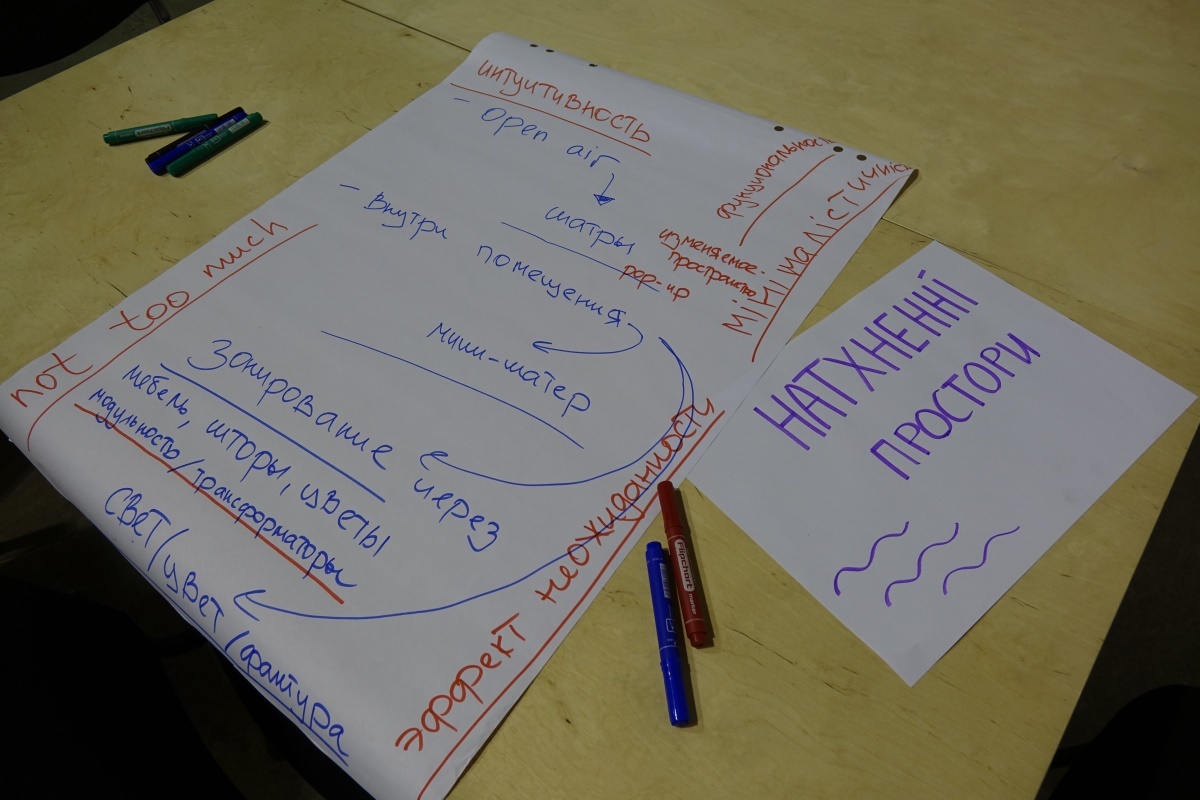 интуитивность
- open air
шатры
- внутри помещения
мини-шатер
Зонирование
через
мебель, шторы, цветы
модульность/трансформаторы
свет/цвет/фактура
not too much
функциональность
изменяемое
пространство
pop-up
эффект неожиданности
НАТХНЕННІ
ПРОСТОРИ
Flipchart
marker